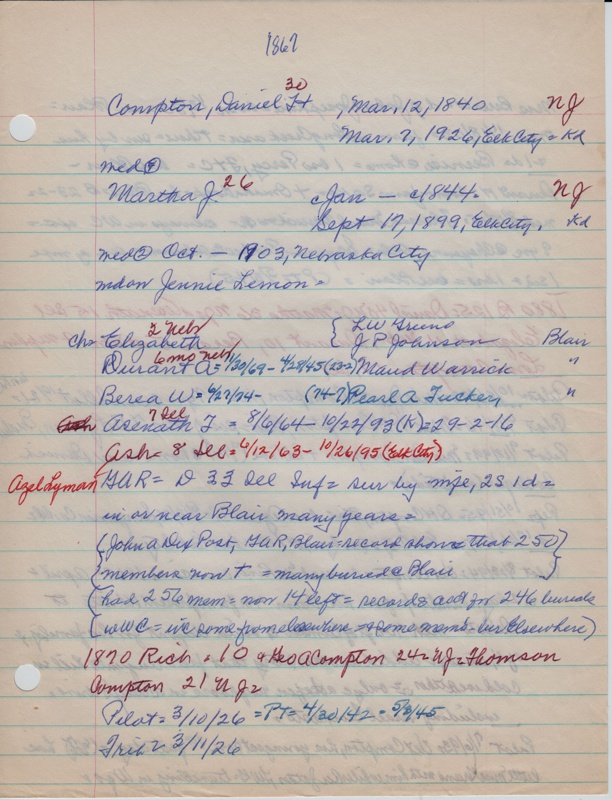 1867
30
Compton, Daniel H , Mar, 12, 1840 NJ
Mar. 7, 1926, Elk City = Kd
med ①
Martha J. 26 cJan — c1844. NJ
Sept 17, 1899, Elk City. Kd
med ② Oct. — 1903, Nebraska City
Jennie Lemon =
2 Nebr
Chs Elizabeth { LW
J P Johnson Blair
6 mo nebr
Durant A = 1/30/69 - 4/28/45 (23-2) Maud Warrick "
Berea W = 4/27/74- (74-7) Pearl A Tucker "
7 Del
Ash Asenath J = 8/6/64 - 10/22/93 (K) = 29-2-16
Ash = 8 Del = 6/12/63 - 10/26/95 (Elk City)
Azel Lyman GAR = D 33 Del Inf = sur by mfe, 2S 1d =
in or near Blair many years =
{ (John A Dix Post, GAR, Blair = record shows that 250)
{ members now + = many buried @ Blair }
{ (had 256 mem = now 14 left = records acct for 246 burials
{ (WWC = some from elsewhere = + some mems bur elsewhere) }
1870 Rich = 10 + Geo A Compton 24 = NJ = Thomson
Compton 21 NJ =
Pilot = 3/10/26 = PT = 4/30/42 = 5/3/45
Trib = 3/11/26